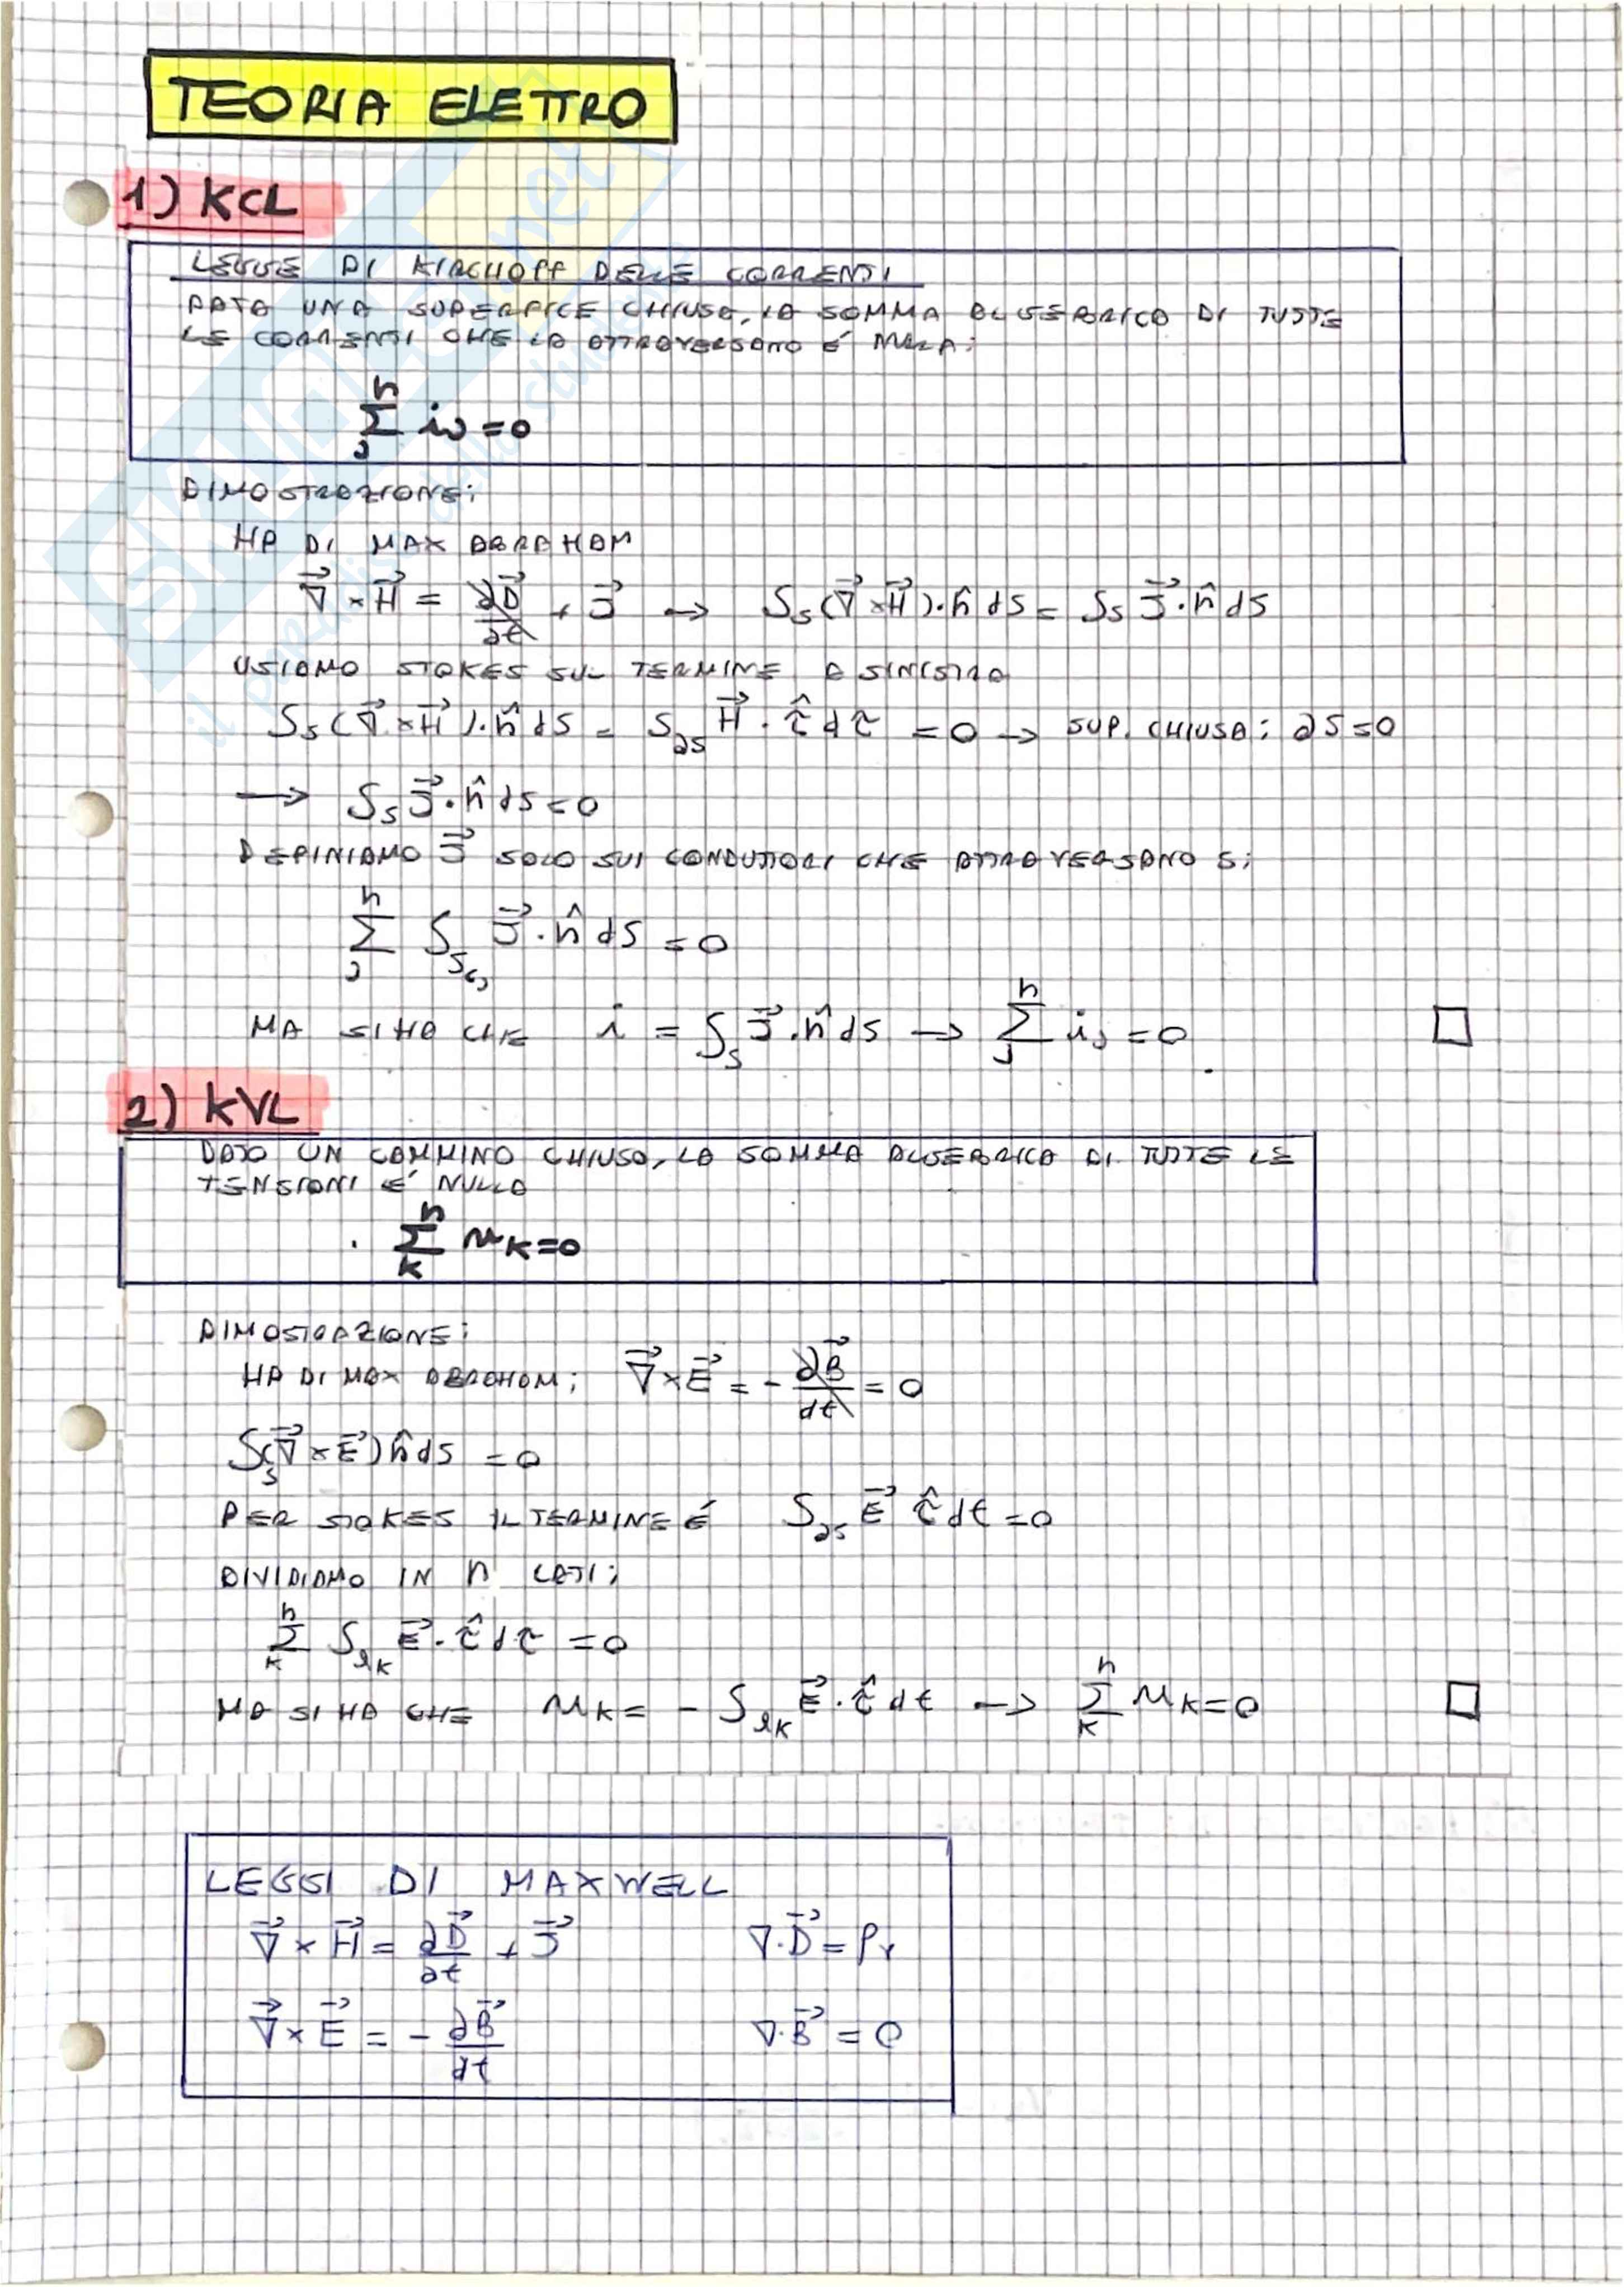 TEORIA ELETTRO
1) KCL
LEGGE DI KIRCHOFF DELLE CORRENTI
DATA UNA SUPERFICE CHIUSA, LA SOMMA ALGEBRICA DI TUTTE
LE CORRENTI CHE LA ATTRAVERSANO É NULLA:
∑_j^n i_j = 0
DIMOSTRAZIONE:
HP DI MAX ABRAHAM
∇⃗ × H⃗ = ∂D⃗/∂t + J⃗ → ∫_S (∇⃗ × H⃗) · n̂ dS = ∫_S J⃗ · n̂ dS
USIAMO STOKES SUL TERMINE A SINISTRA
∫_S (∇⃗ × H⃗) · n̂ dS = ∫_∂S H⃗ · τ̂ dτ = 0 → SUP. CHIUSA: ∂S = 0
→ ∫_S J⃗ · n̂ dS = 0
DEFINIAMO J⃗ SOLO SUI CONDUTTORI CHE ATTRAVERSANO S:
∑_j^n ∫_S_cj J⃗ · n̂ dS = 0
MA SI HA CHE i = ∫_S J⃗ · n̂ dS → ∑_j^n i_j = 0 □
2) KVL
DATO UN CAMMINO CHIUSO, LA SOMMA ALGEBRICA DI TUTTE LE
TENSIONI É NULLA
∑_k^n u_k = 0
DIMOSTRAZIONE:
HP DI MAX ABRAHAM: ∇⃗ × E⃗ = - ∂B⃗/dt = 0
∫_S (∇⃗ × E⃗) n̂ dS = 0
PER STOKES IL TERMINE É ∫_∂S E⃗ τ̂ dt = 0
DIVIDIAMO IN n LATI:
∑_k^n ∫_lk E⃗ · τ̂ dτ = 0
MA SI HA CHE u_k = - ∫_lk E⃗ · τ̂ dt → ∑_k^n u_k = 0 □
LEGGI DI MAXWELL
∇⃗ × H⃗ = ∂D⃗/∂t + J⃗ ∇ · D⃗ = ρ_v
∇⃗ × E⃗ = - ∂B⃗/dt ∇ · B⃗ = 0